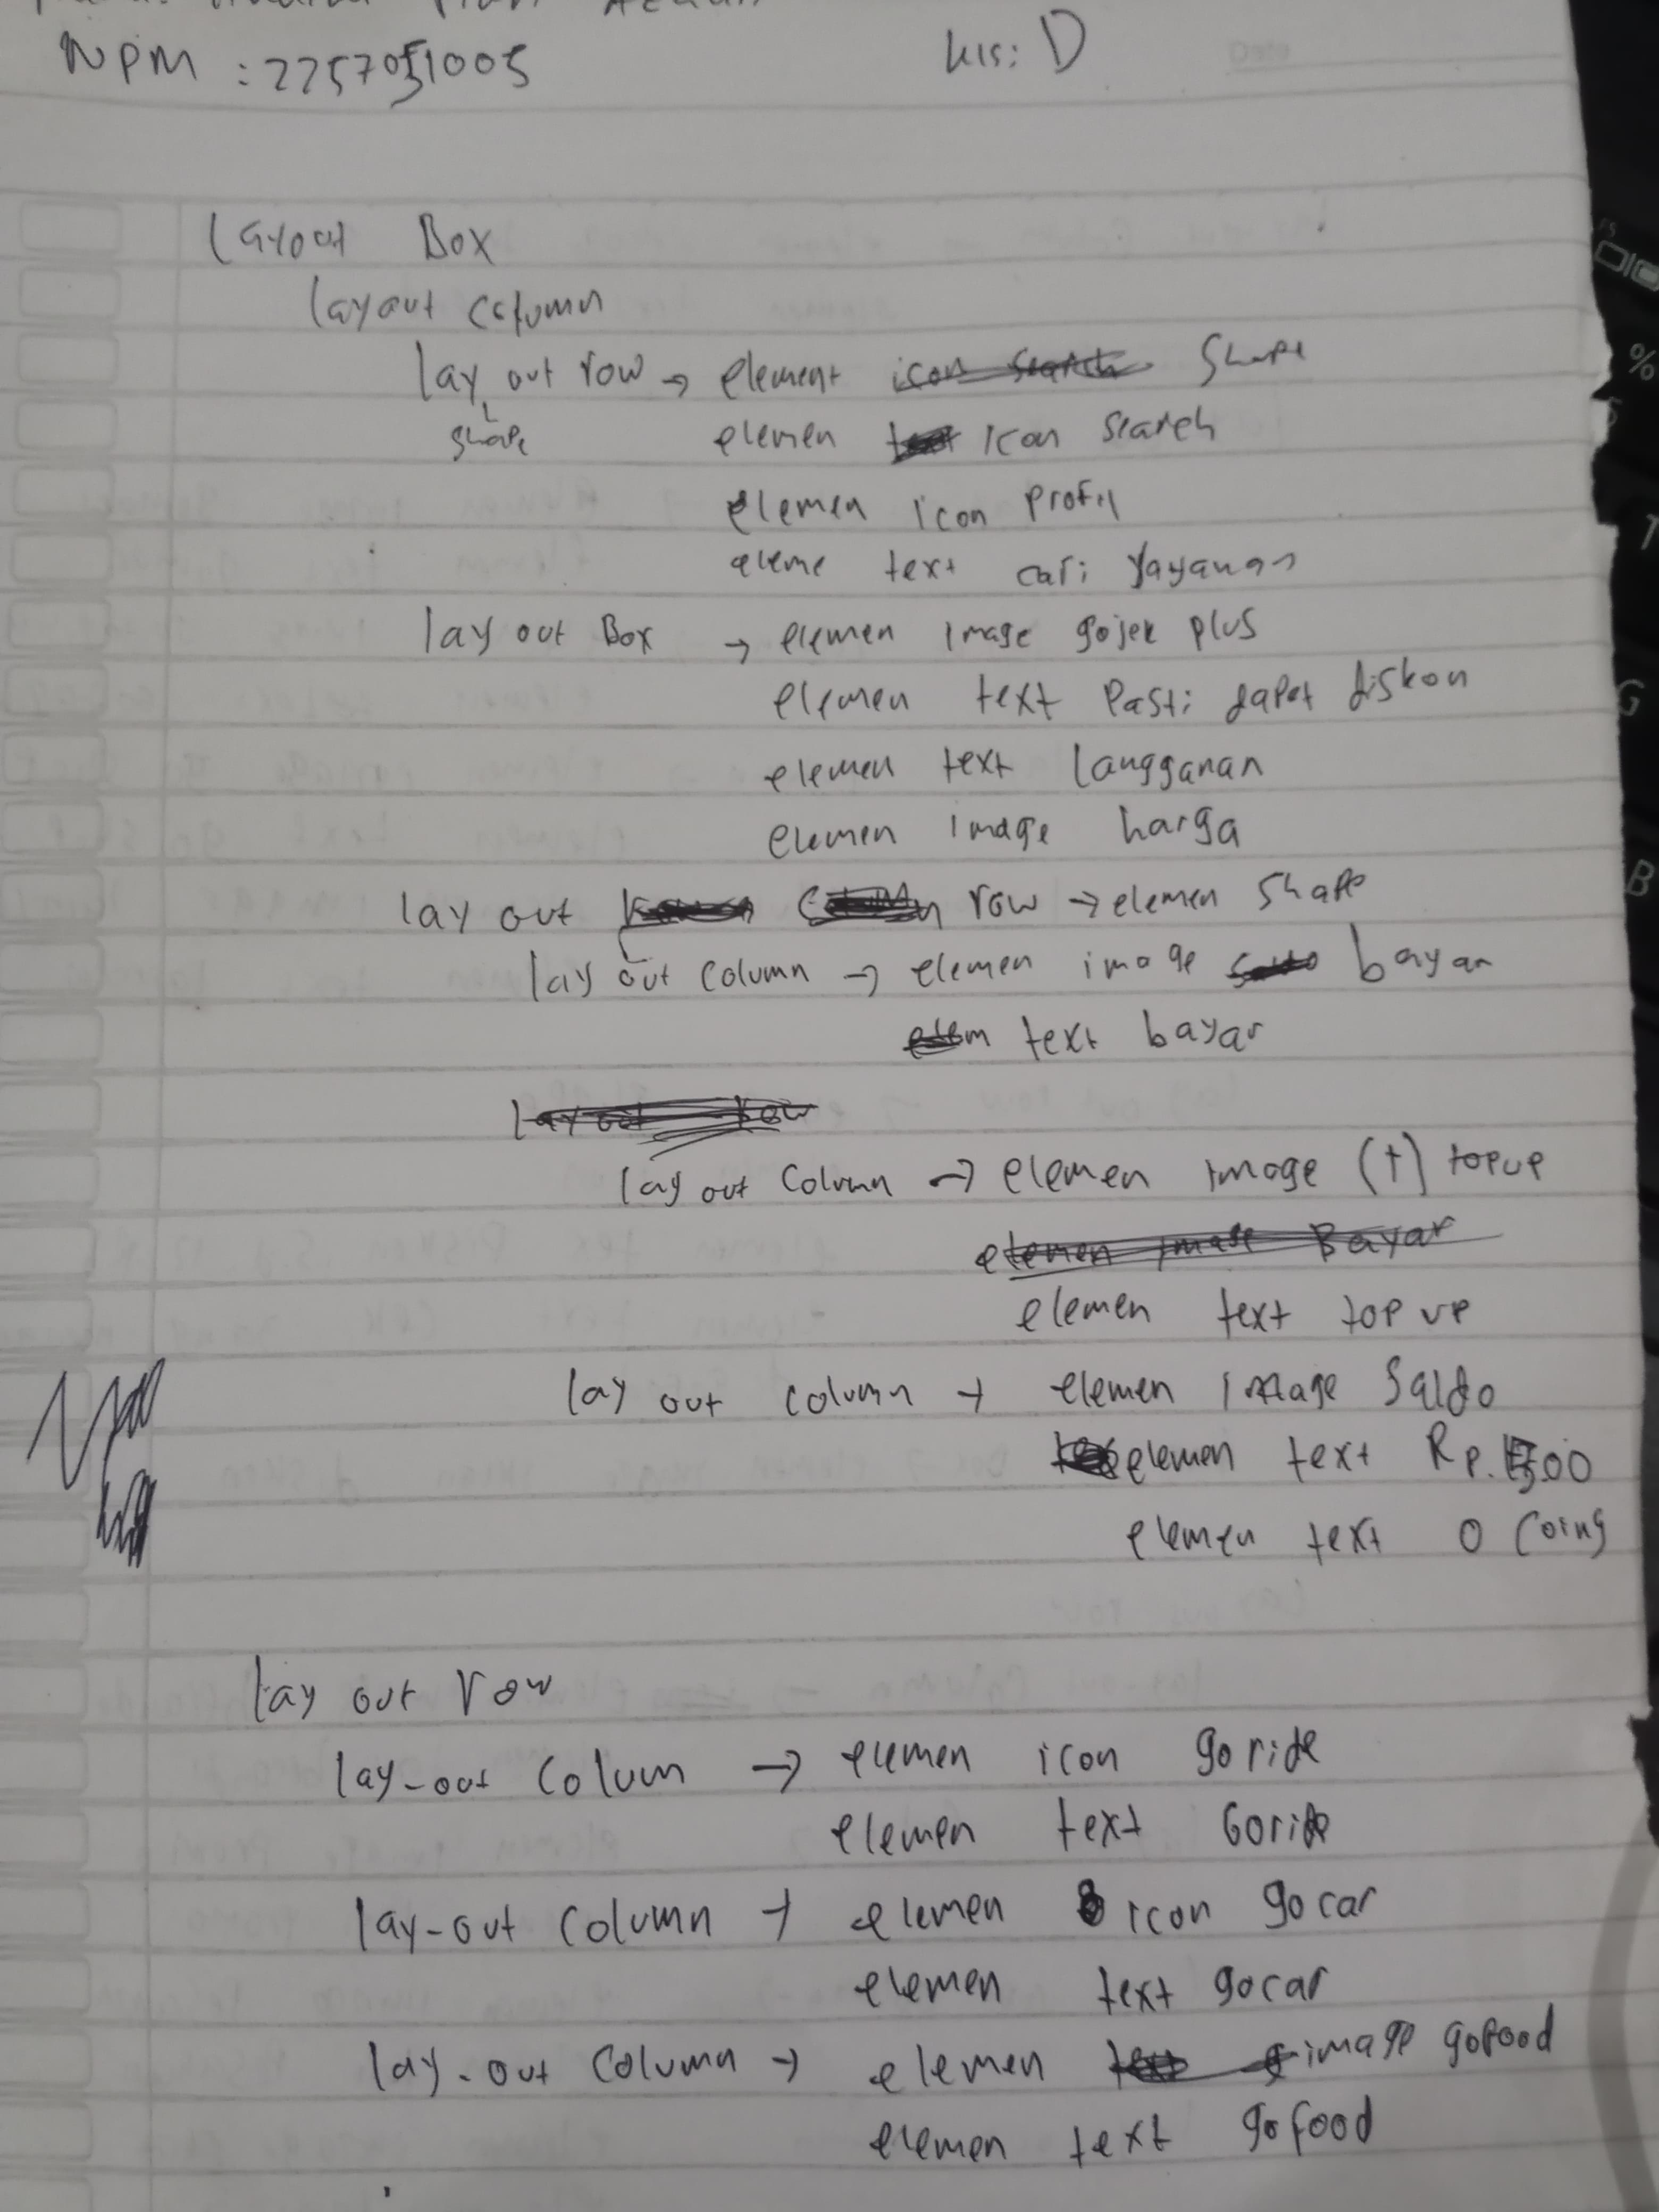 NPM : 2257051005 kls: D
Layout Box
layout column
lay out row → element Shape
shape elemen icon search
elemen icon profil
eleme text cari layanan
lay out Box → elemen image gojek plus
elemen text Pasti dapet diskon
elemen text langganan
elemen image harga
lay out row → elemen shape
lay out column → elemen image bayar
text bayar
lay out column → elemen image (↑) topup
elemen text top up
lay out column → elemen image Saldo
elemen text Rp.
elemen text 0 Coins
lay out row
lay-out colum → elemen icon goride
elemen text Goride
lay-out column → elemen icon gocar
elemen text gocar
lay-out column → elemen image gofood
elemen text gofood